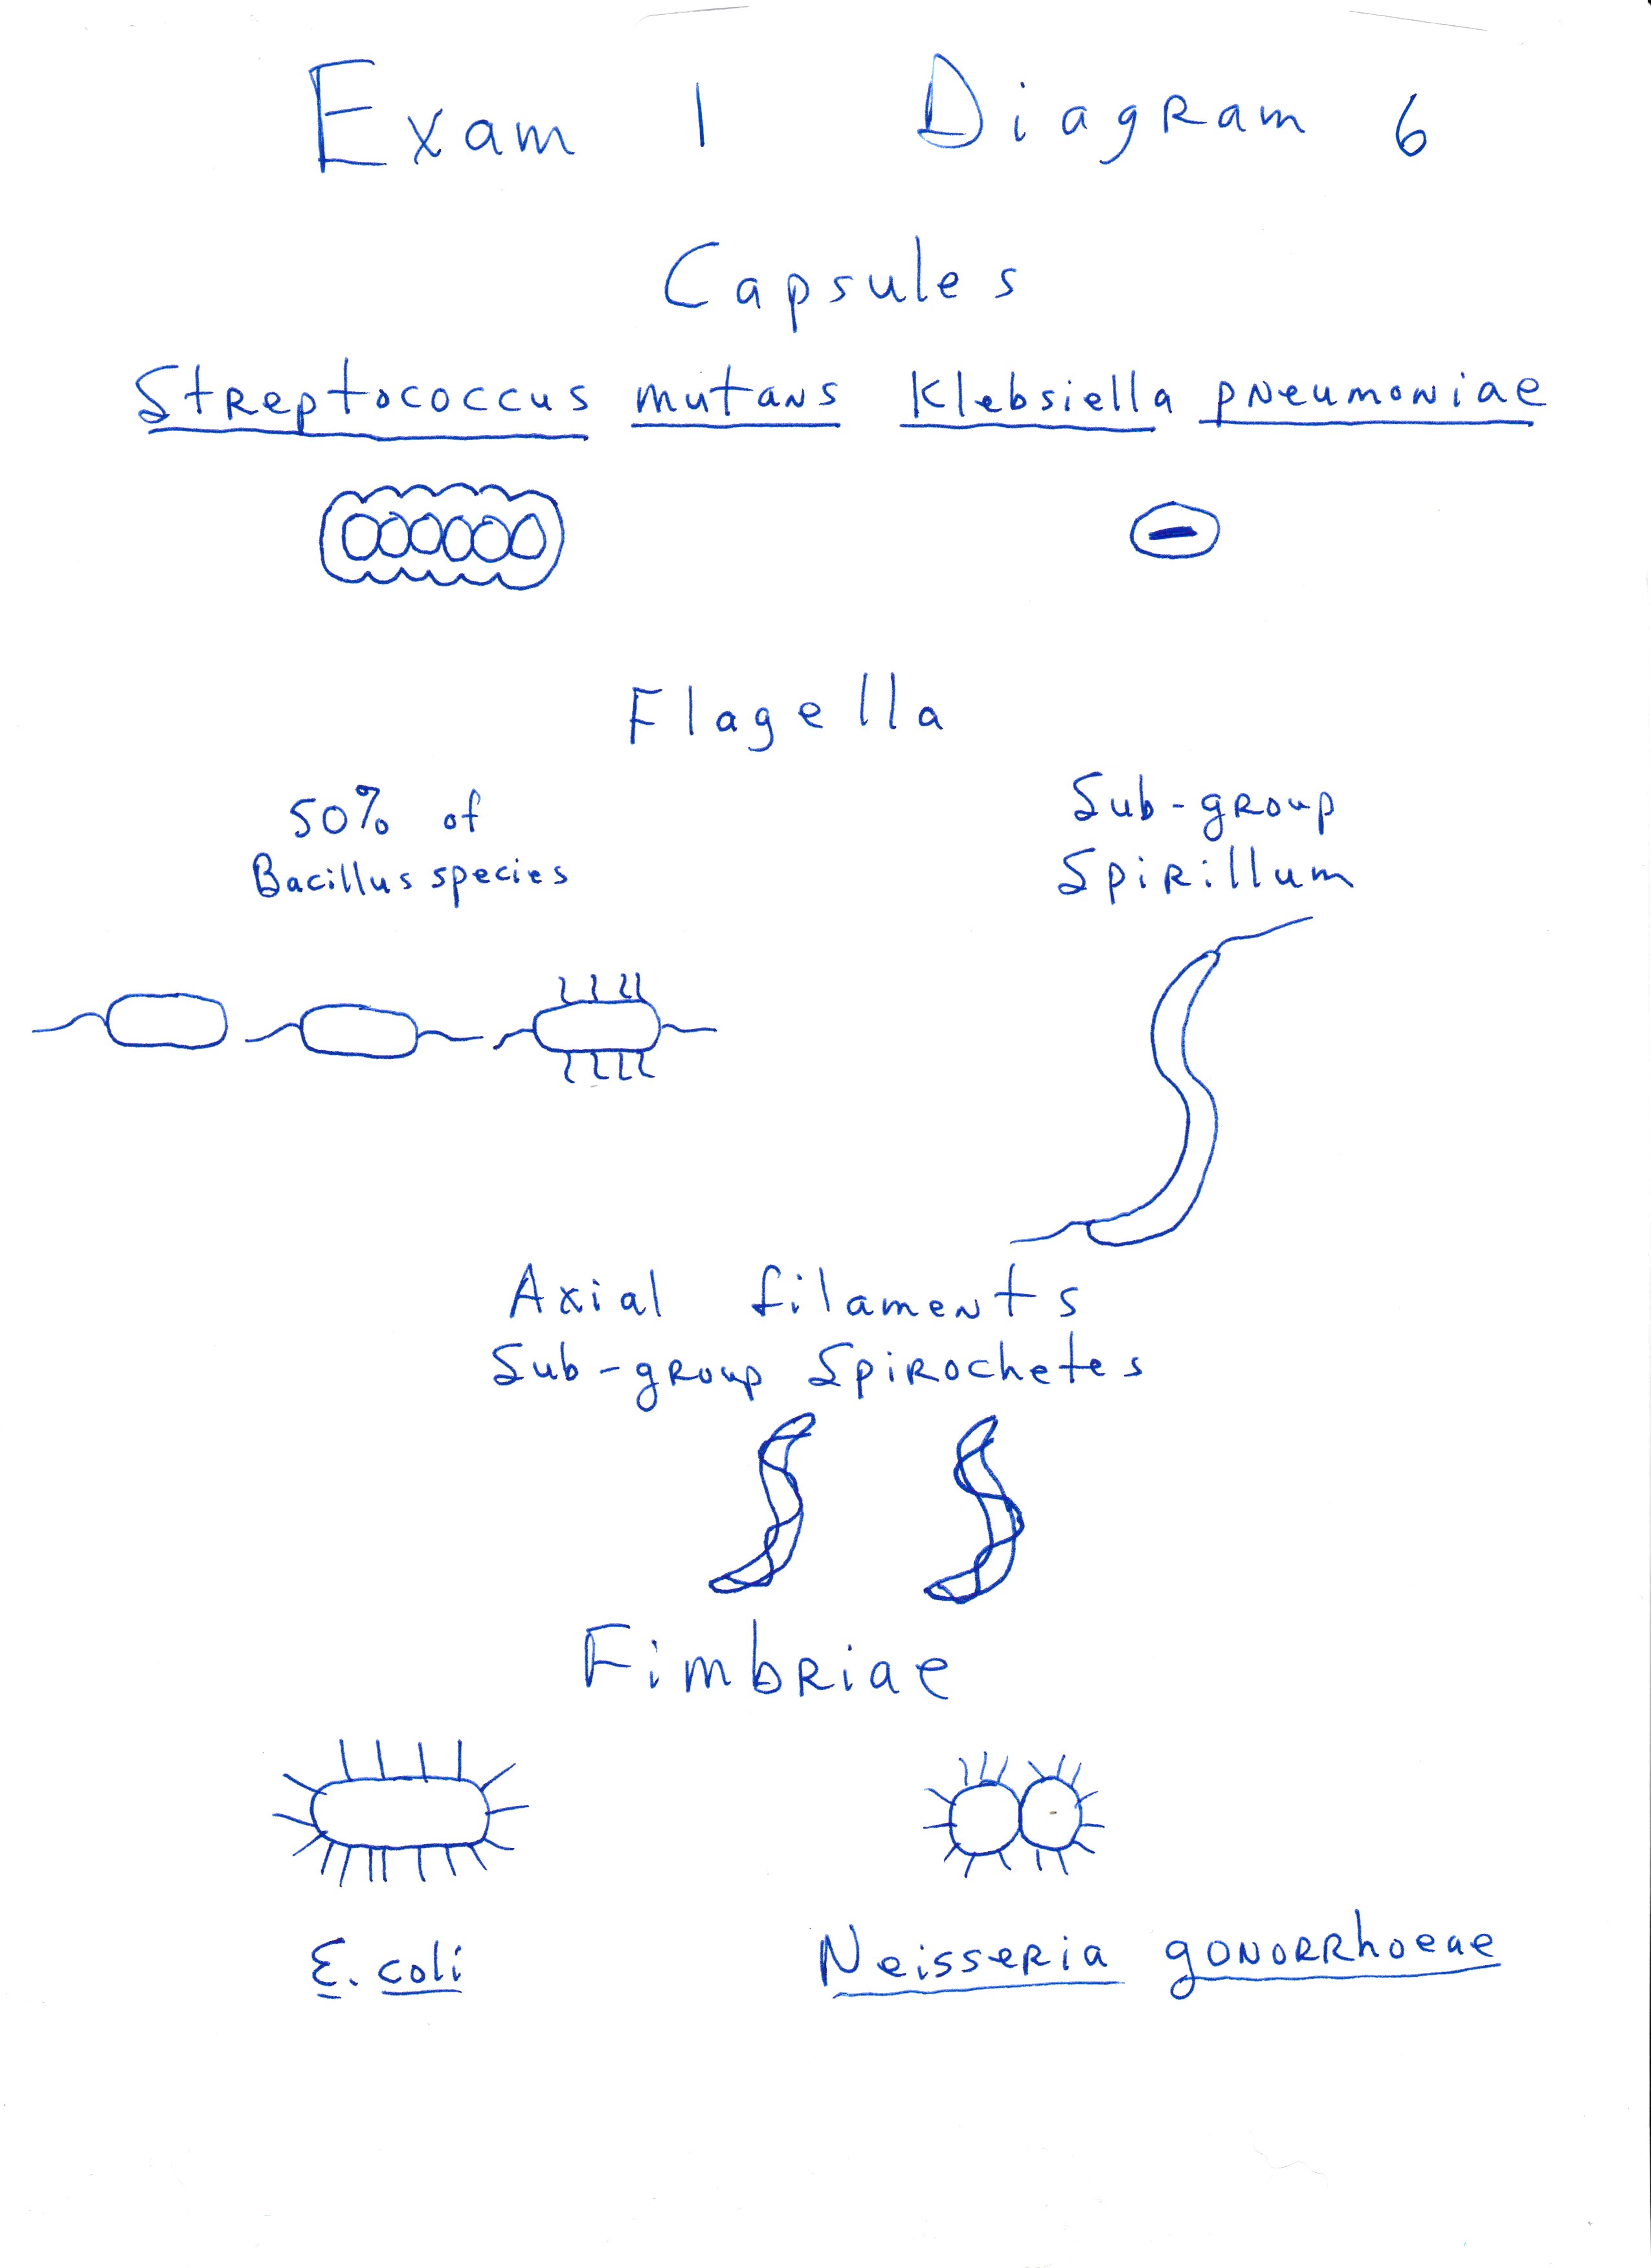 Exam 1 Diagram 6
Capsules
Streptococcus mutans Klebsiella pneumoniae
Flagella
50% of
Bacillus species
Sub-group
Spirillum
Axial filaments
Sub-group Spirochetes
Fimbriae
E. coli
Neisseria gonorrhoeae